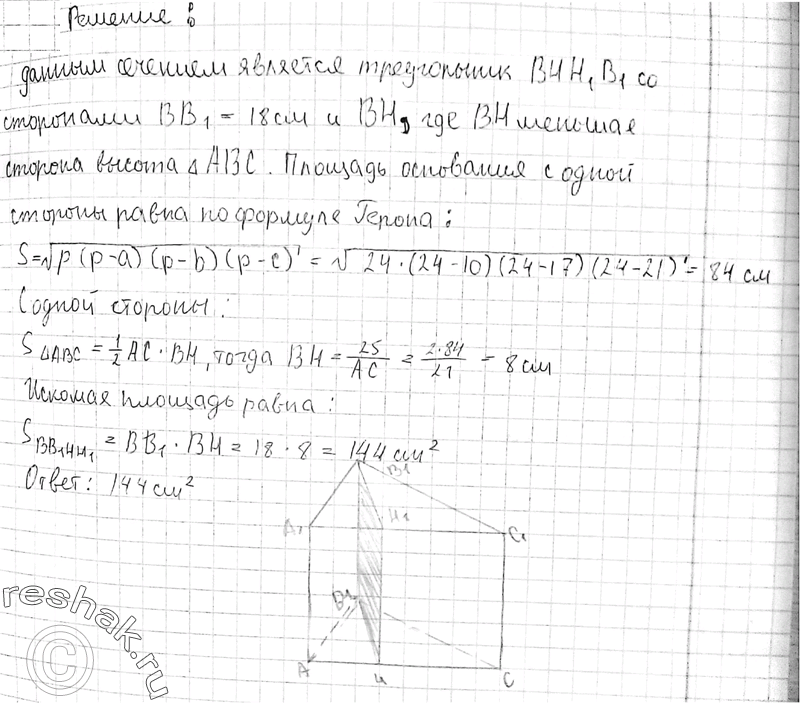 Решение:
данным сечением является треугольник BHH₁B₁ со
сторонами BB₁ = 18 см и BH, где BH меньшая
сторона высота △ ABC. Площадь основания с одной
стороны равна по формуле Герона:
S=√p(p-a)(p-b)(p-c) = √24·(24-10)(24-17)(24-21) = 84 см
С одной стороны:
S△ABC = 1/2 AC · BH, тогда BH = 2S/AC = 2·84/21 = 8 см
Искомая площадь равна:
SBB₁HH₁ = BB₁ · BH = 18 · 8 = 144 см²
Ответ: 144 см²
B₁
A₁ H₁ C₁
B
A H C
reshak.ru
©